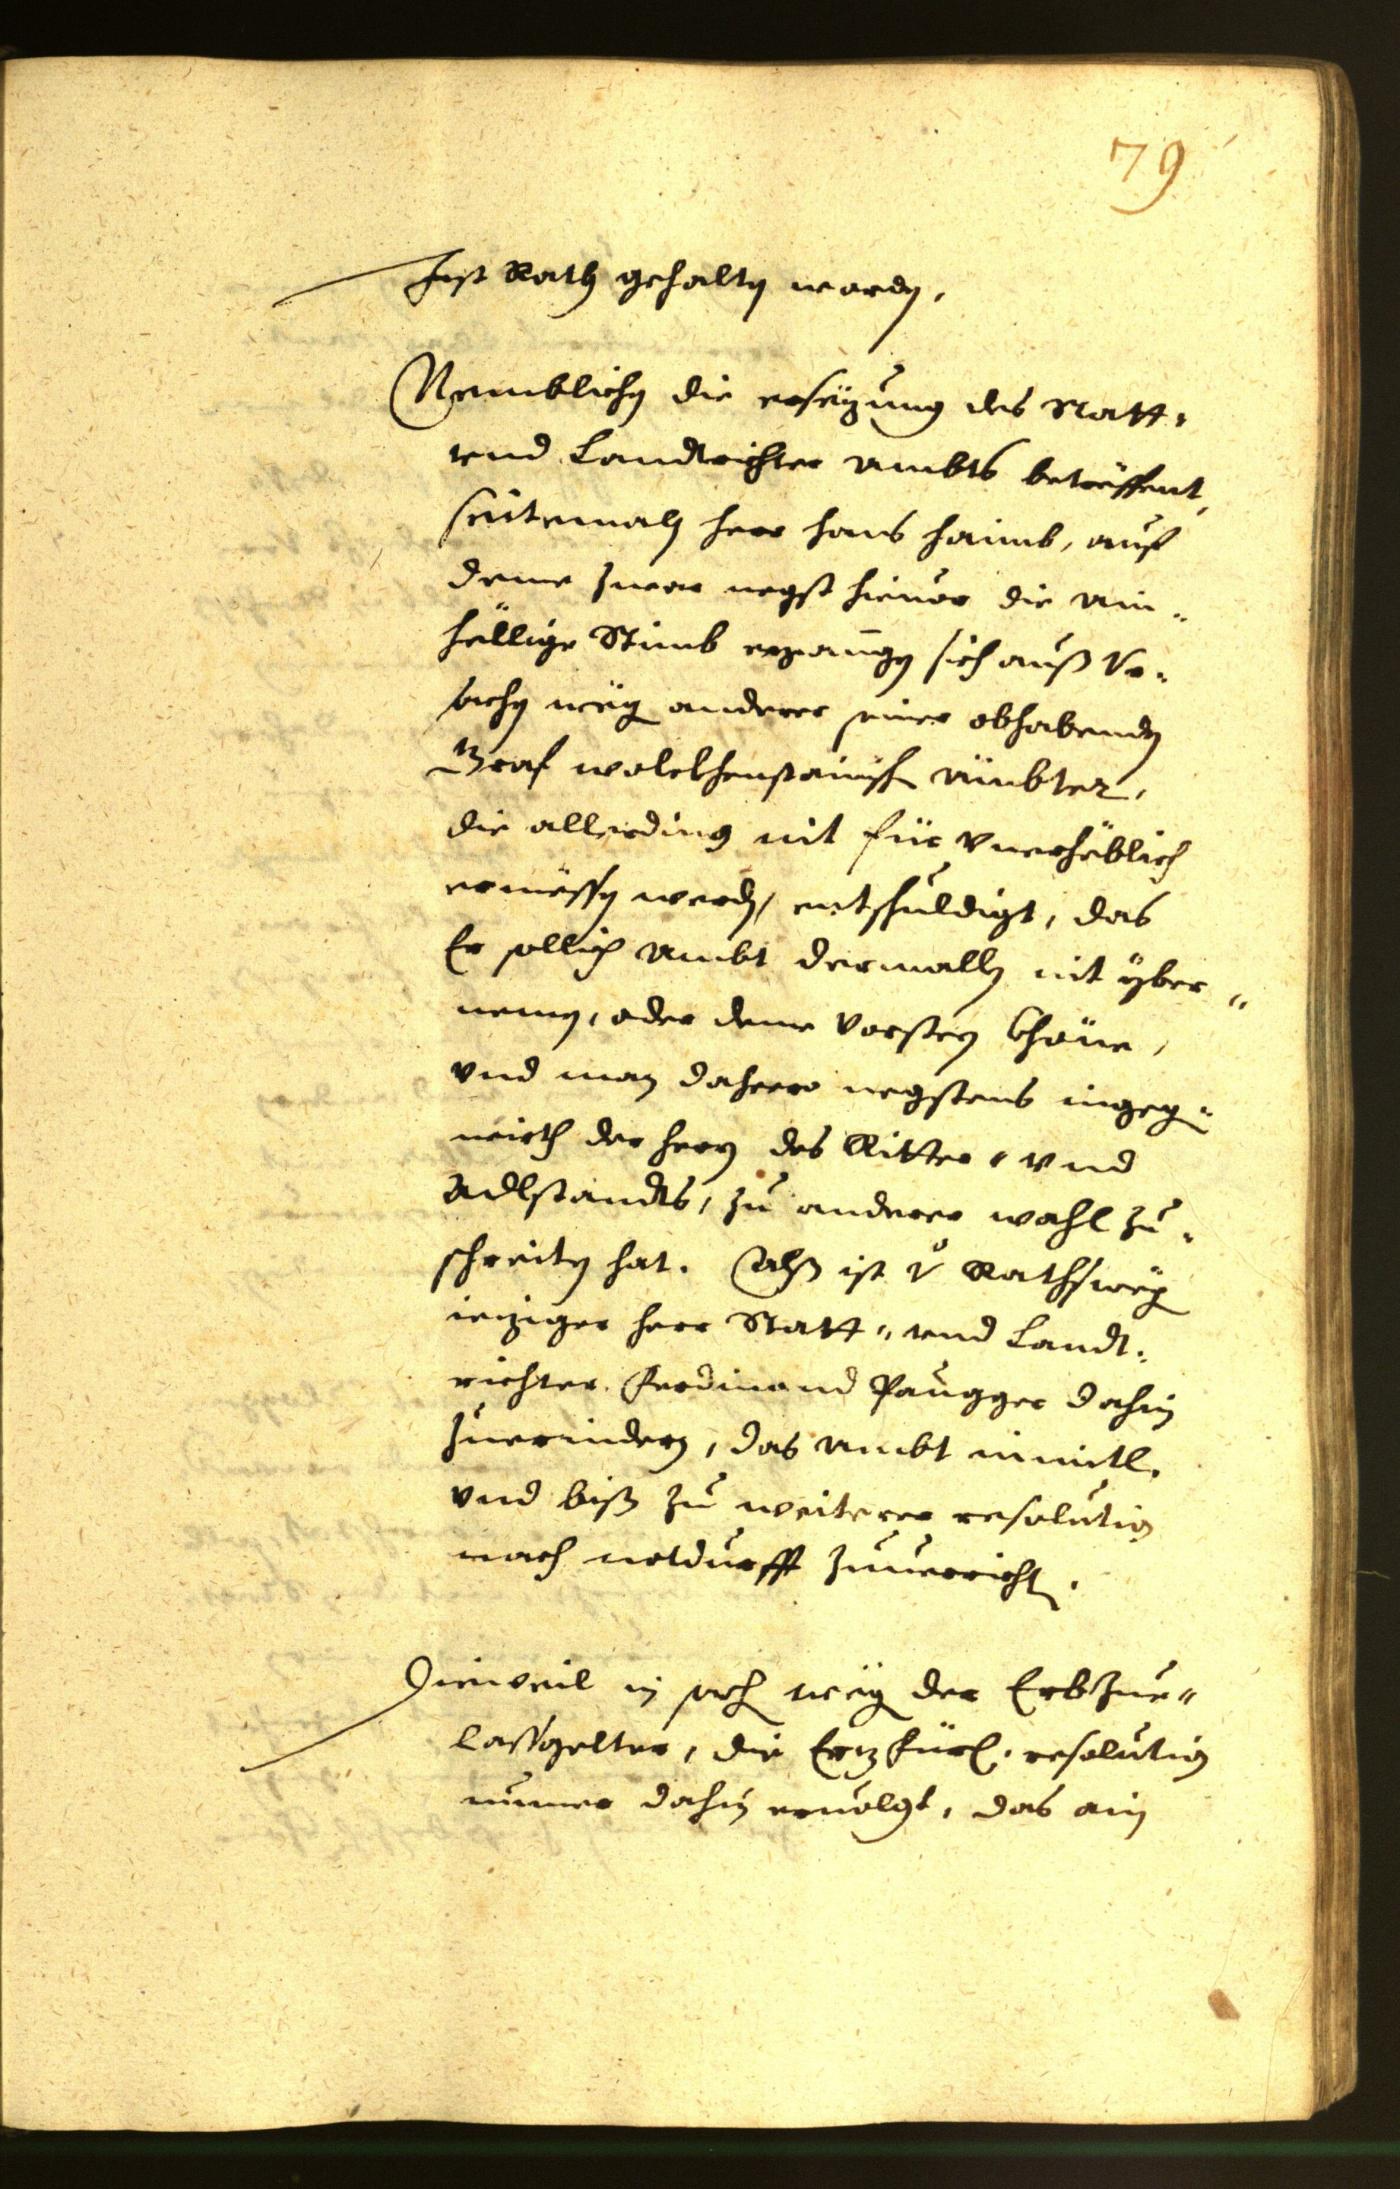 79
Ist Rath gehalten worden,
Nemblichen die ersezung des Statt-
vnd Landtrichter Ambts betreffent,
seitemaln herr Hans Haimb, auf
deme zwar negst hieuor die ain-
hellige Stimb ergangen sich auß Vr-
sachen weg anderer seiner obhabenden
Graf wolckhenstainisch Ämbter,
die allerding nit für vnerheblich
ermessen werden, entschuldigt, das
Er sollich Ambt dermallen nit yber-
nemen, oder deme Vorsteen khöne,
vnd man dahero negstens ingegen-
wirth der herrn des Ritter- vnd
Adlstandts, zu anderer wahl zu-
schreiten hat. Alß ist Rathsweg
ieziger herr Statt- vnd Landt-
richter Ferdinand Paugger dahin
zuerindern, das Ambt inmitl.
vnd biß zu weiterer resolution
nach notdurfft zuuerrichten.
Dieweil in sach weg der Erbzue-
lassgelter, die Erzfürl. resolution
numer dahin eruolgt, das ain